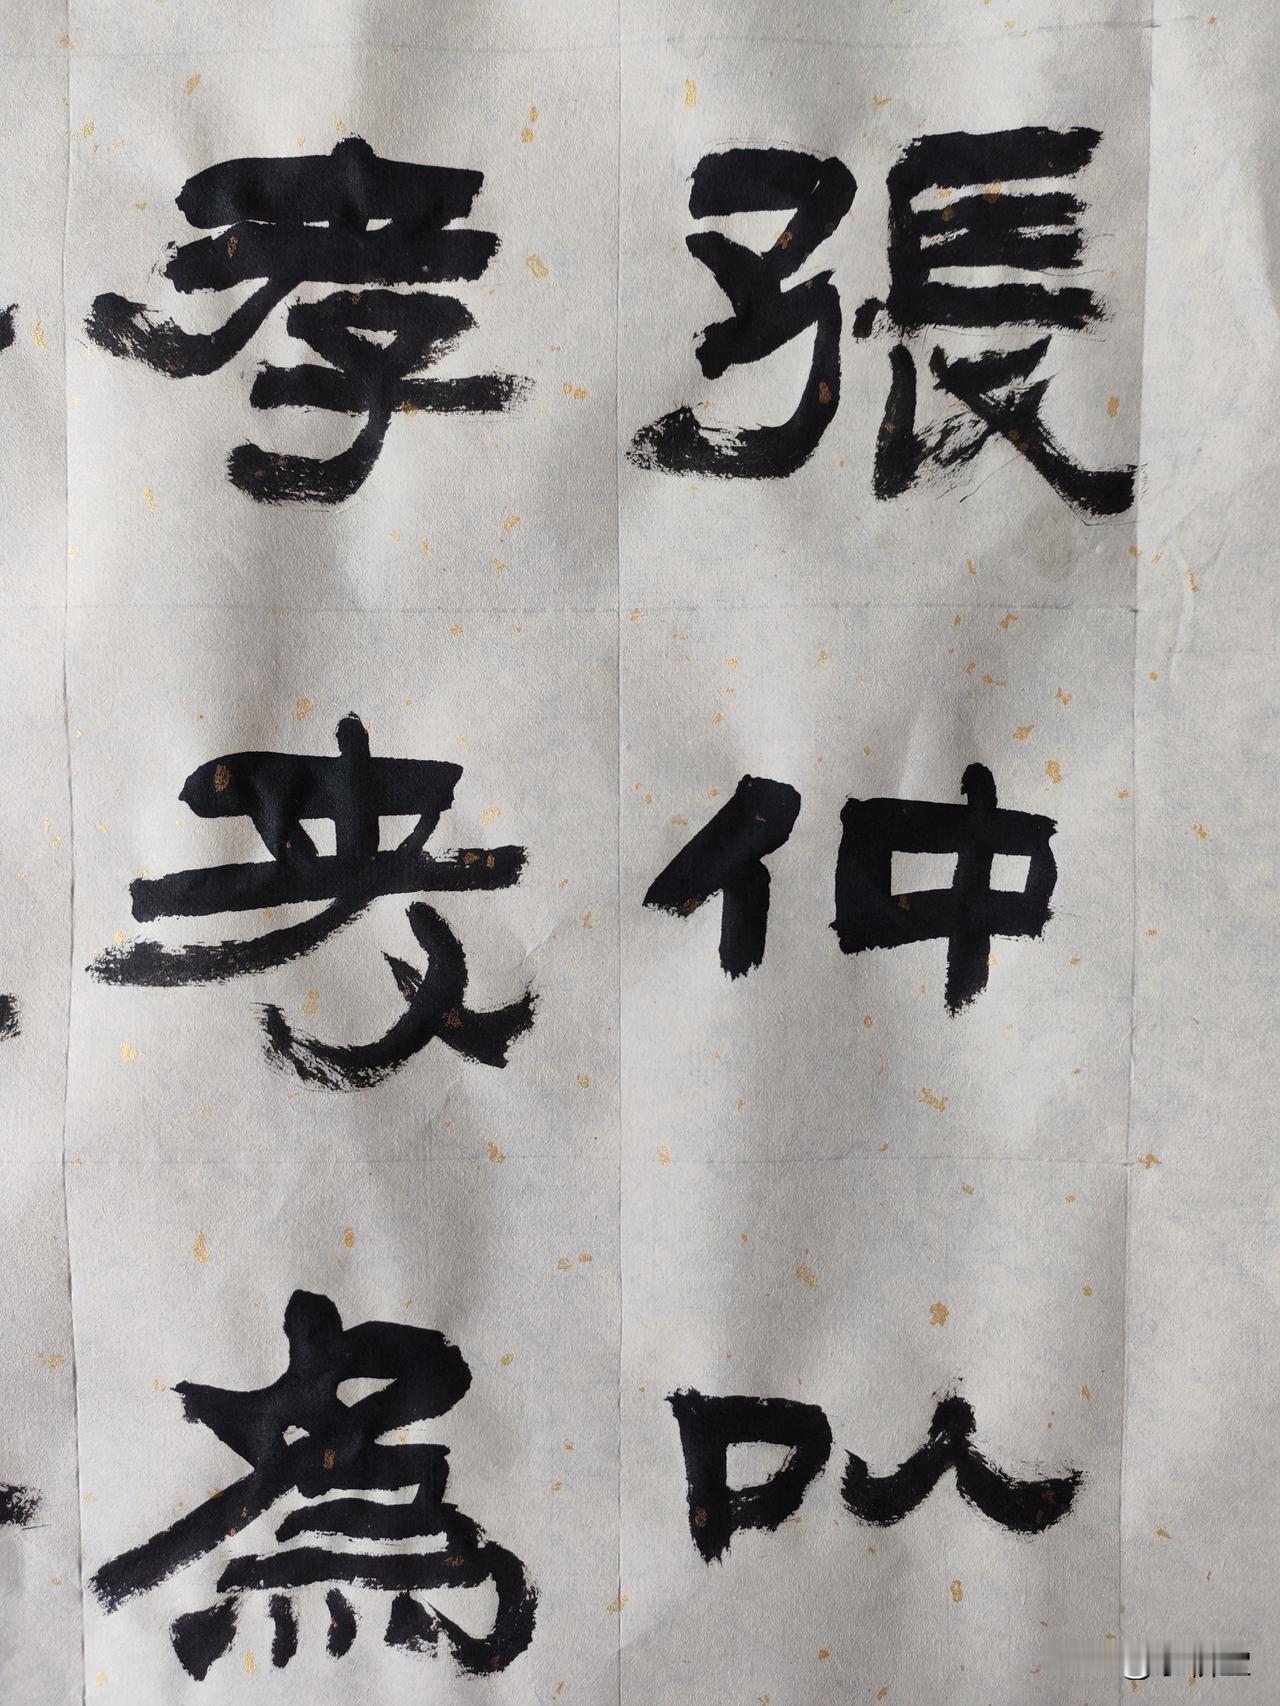 張仲以
孝友為